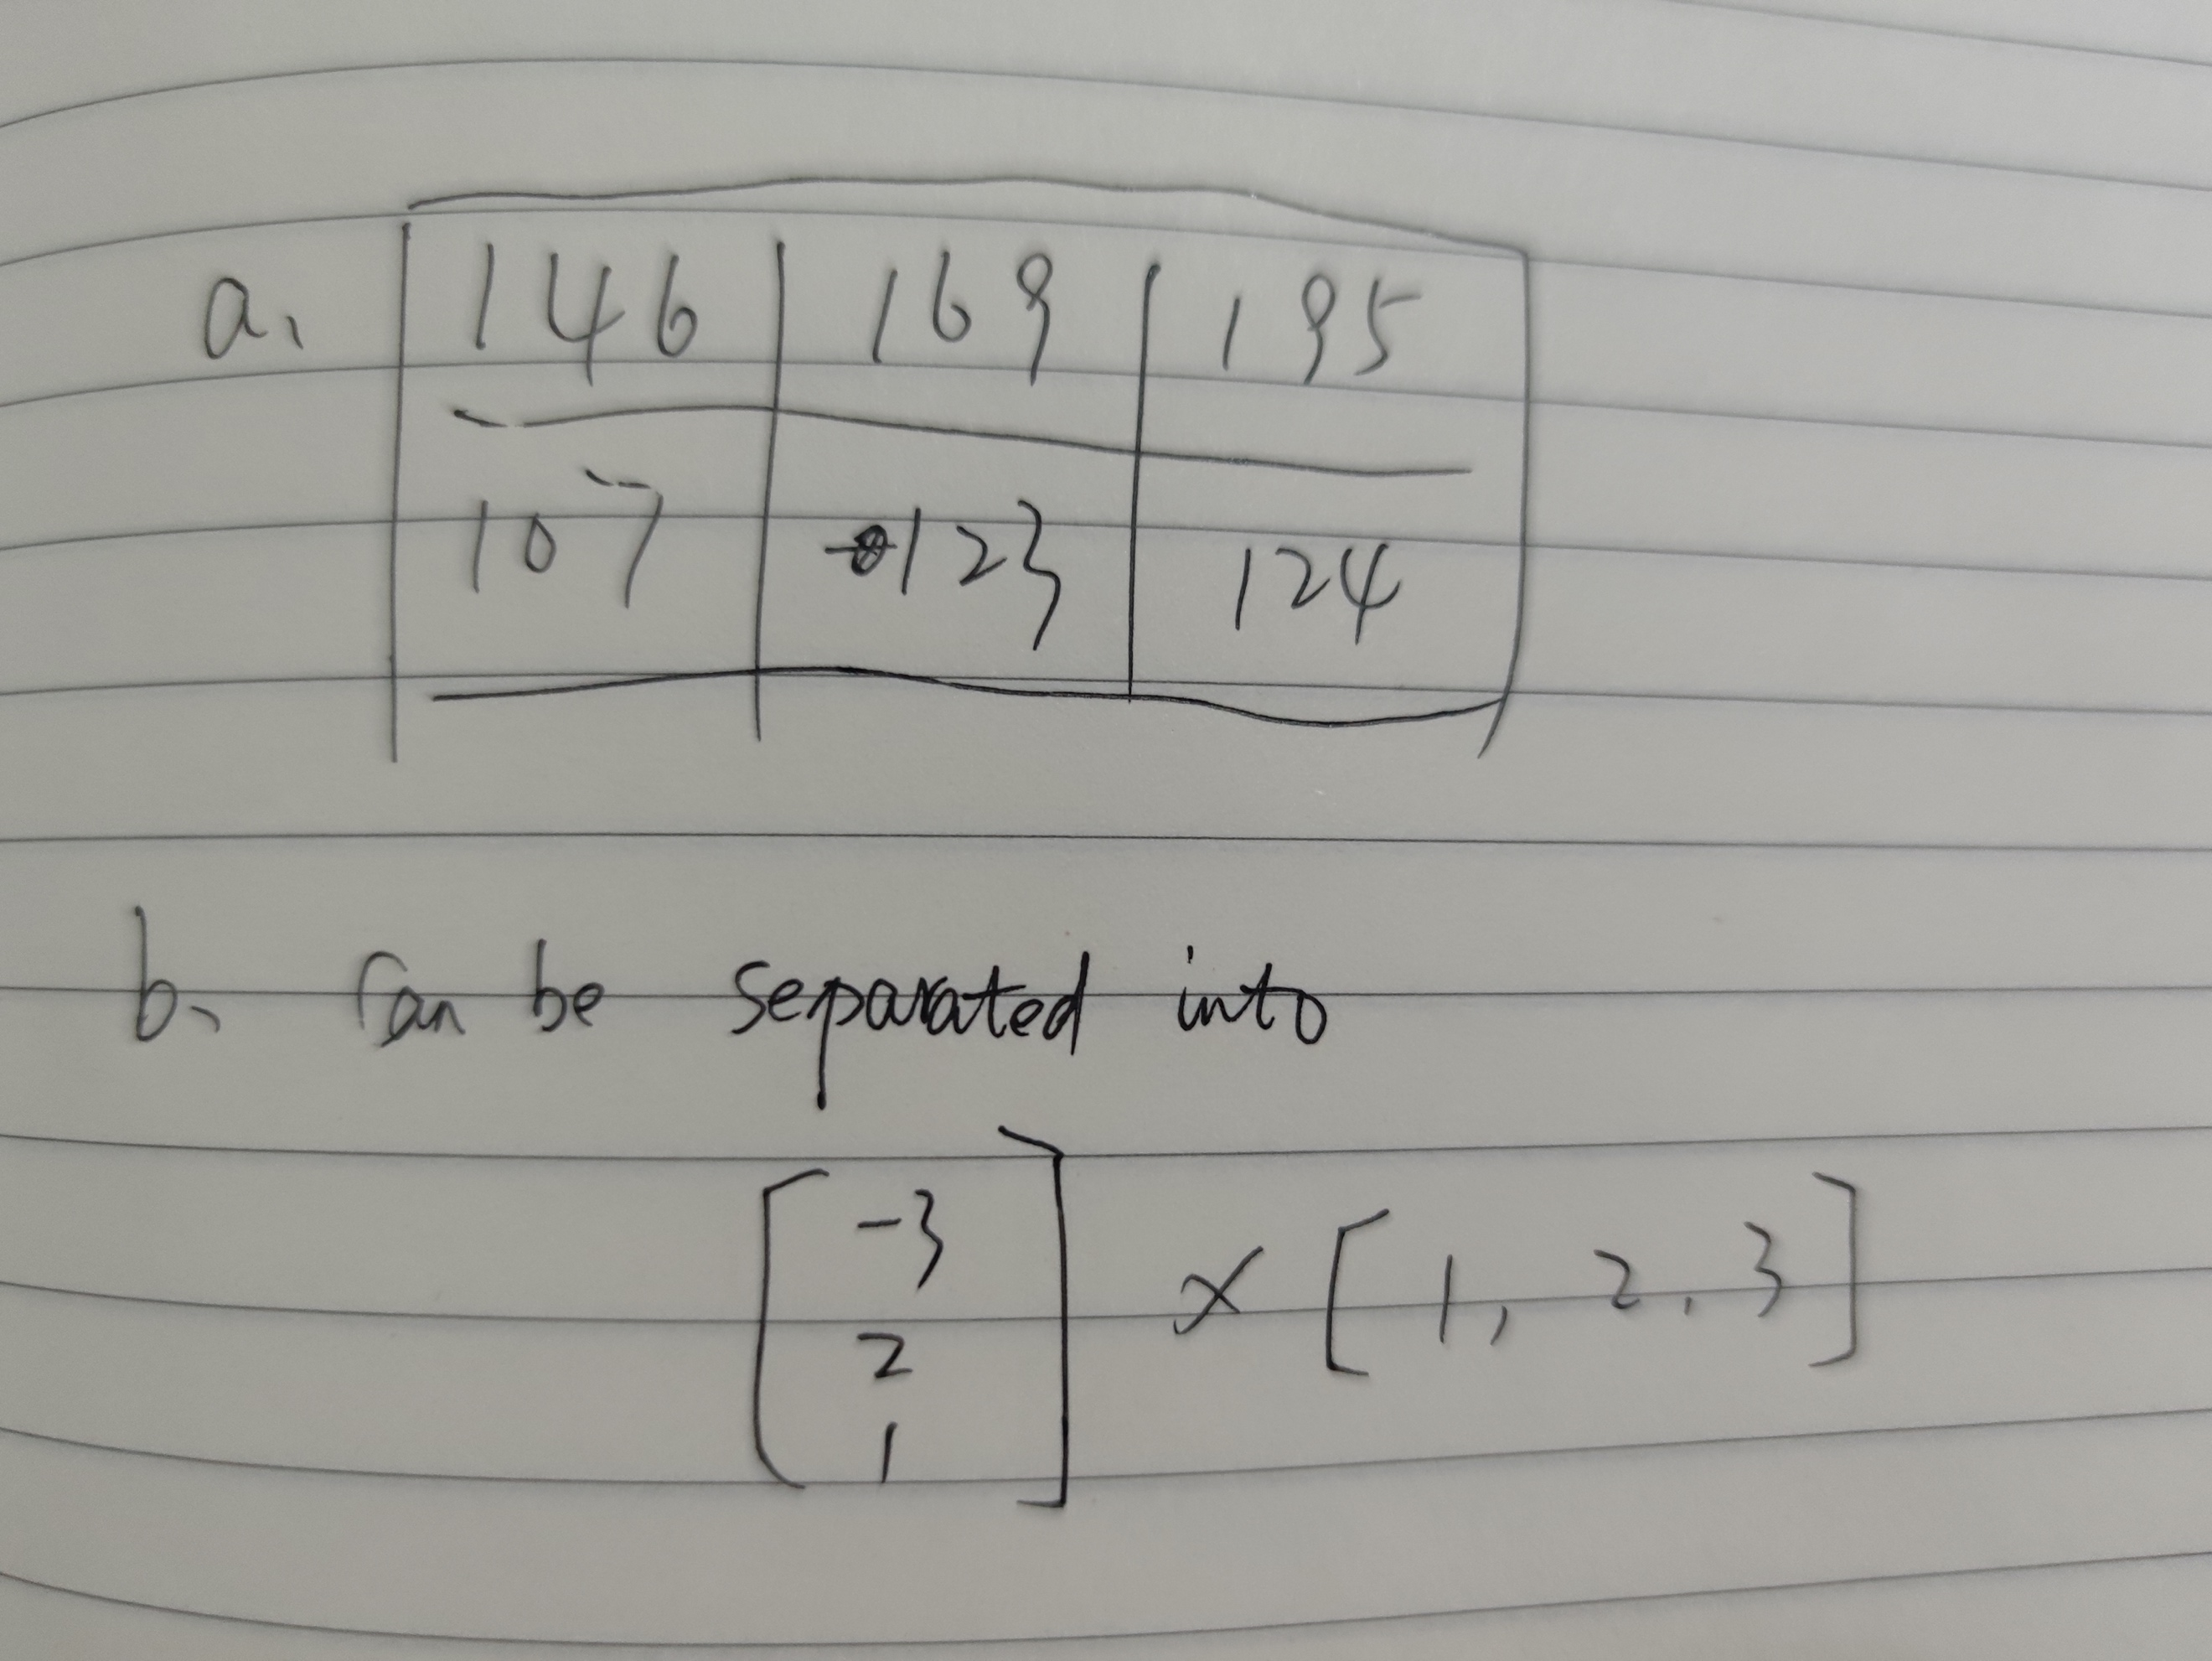 a. 146 169 195
107 123 124
b. Can be separated into
-3
2 × [1, 2, 3]
1